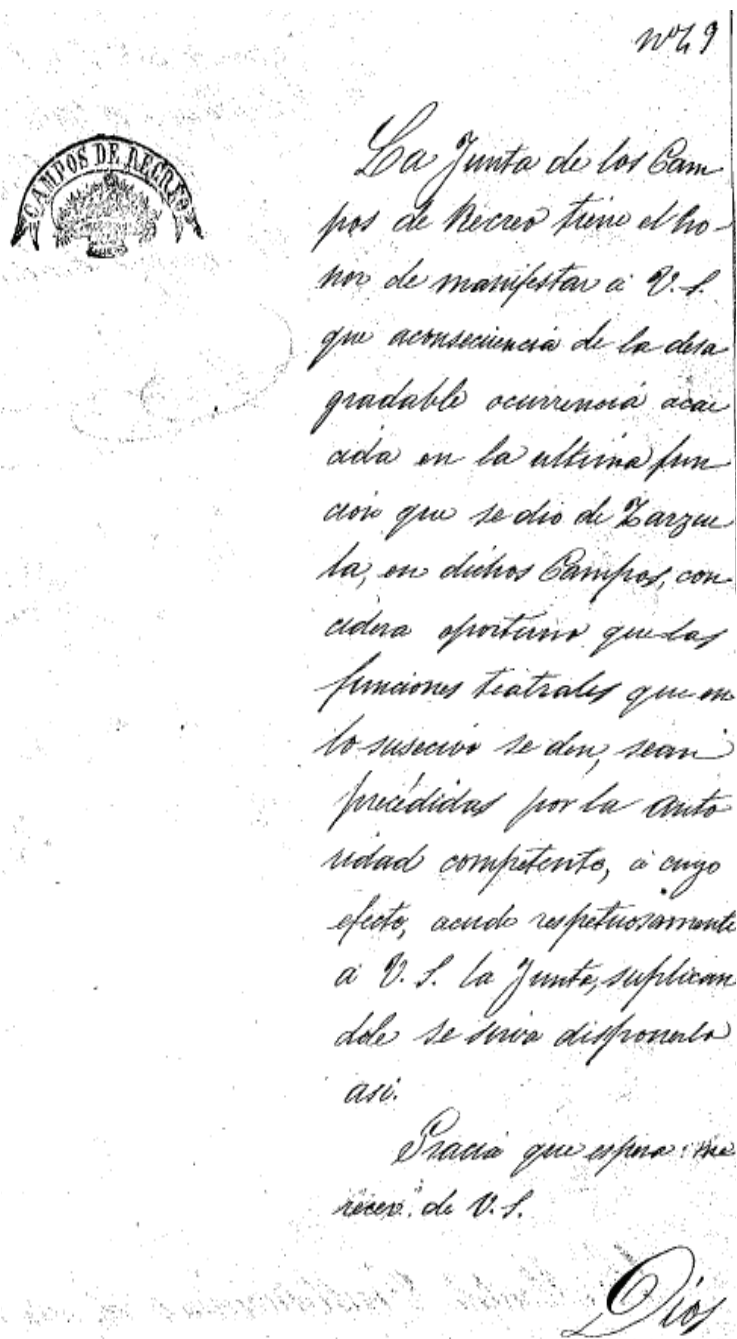 nº 49
CAMPOS DE RECREO
La Junta de los Cam
pos de Recreo tiene el ho-
nor de manifestar á V. S.
que aconsecuencia de la desa
gradable ocurrencia acae
cida en la ultima fun
cion que se dio de Zarzue
la, en dichos Campos, con
cidera oportuno que las
funciones teatrales que en
lo susecivo se den, sean
precedidas por la auto
ridad competente, á cuyo
efecto, acude respetuosamente
á V. S. la Junta, suplican
dole se sirva disponerlo
asi.
Gracia que espera me
recer de V. S.
Dios